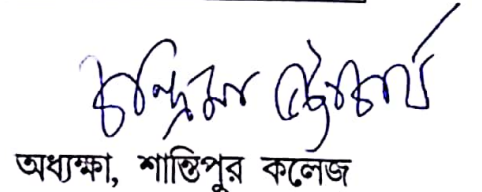 চন্দ্রিমা ভট্টাচার্য
অধ্যক্ষা, শান্তিপুর কলেজ